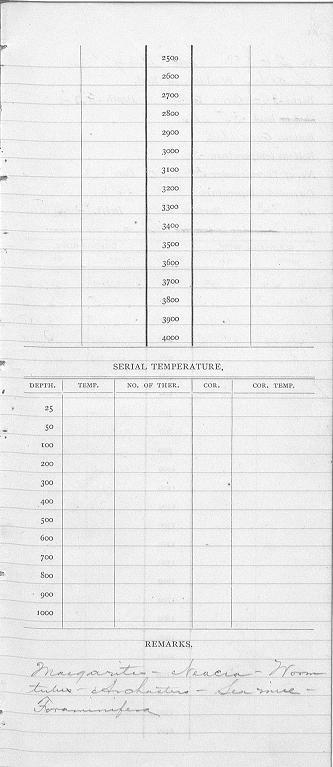 2500
2600
2700
2800
2900
3000
3100
3200
3300
3400
3500
3600
3700
3800
3900
4000
SERIAL TEMPERATURE.
DEPTH. TEMP. NO. OF THER. COR. COR. TEMP.
25
50
100
200
300
400
500
600
700
800
900
1000
REMARKS.
Margarites - Neaera - Worm
tubes - Archasters - Sea mice -
Foraminifera